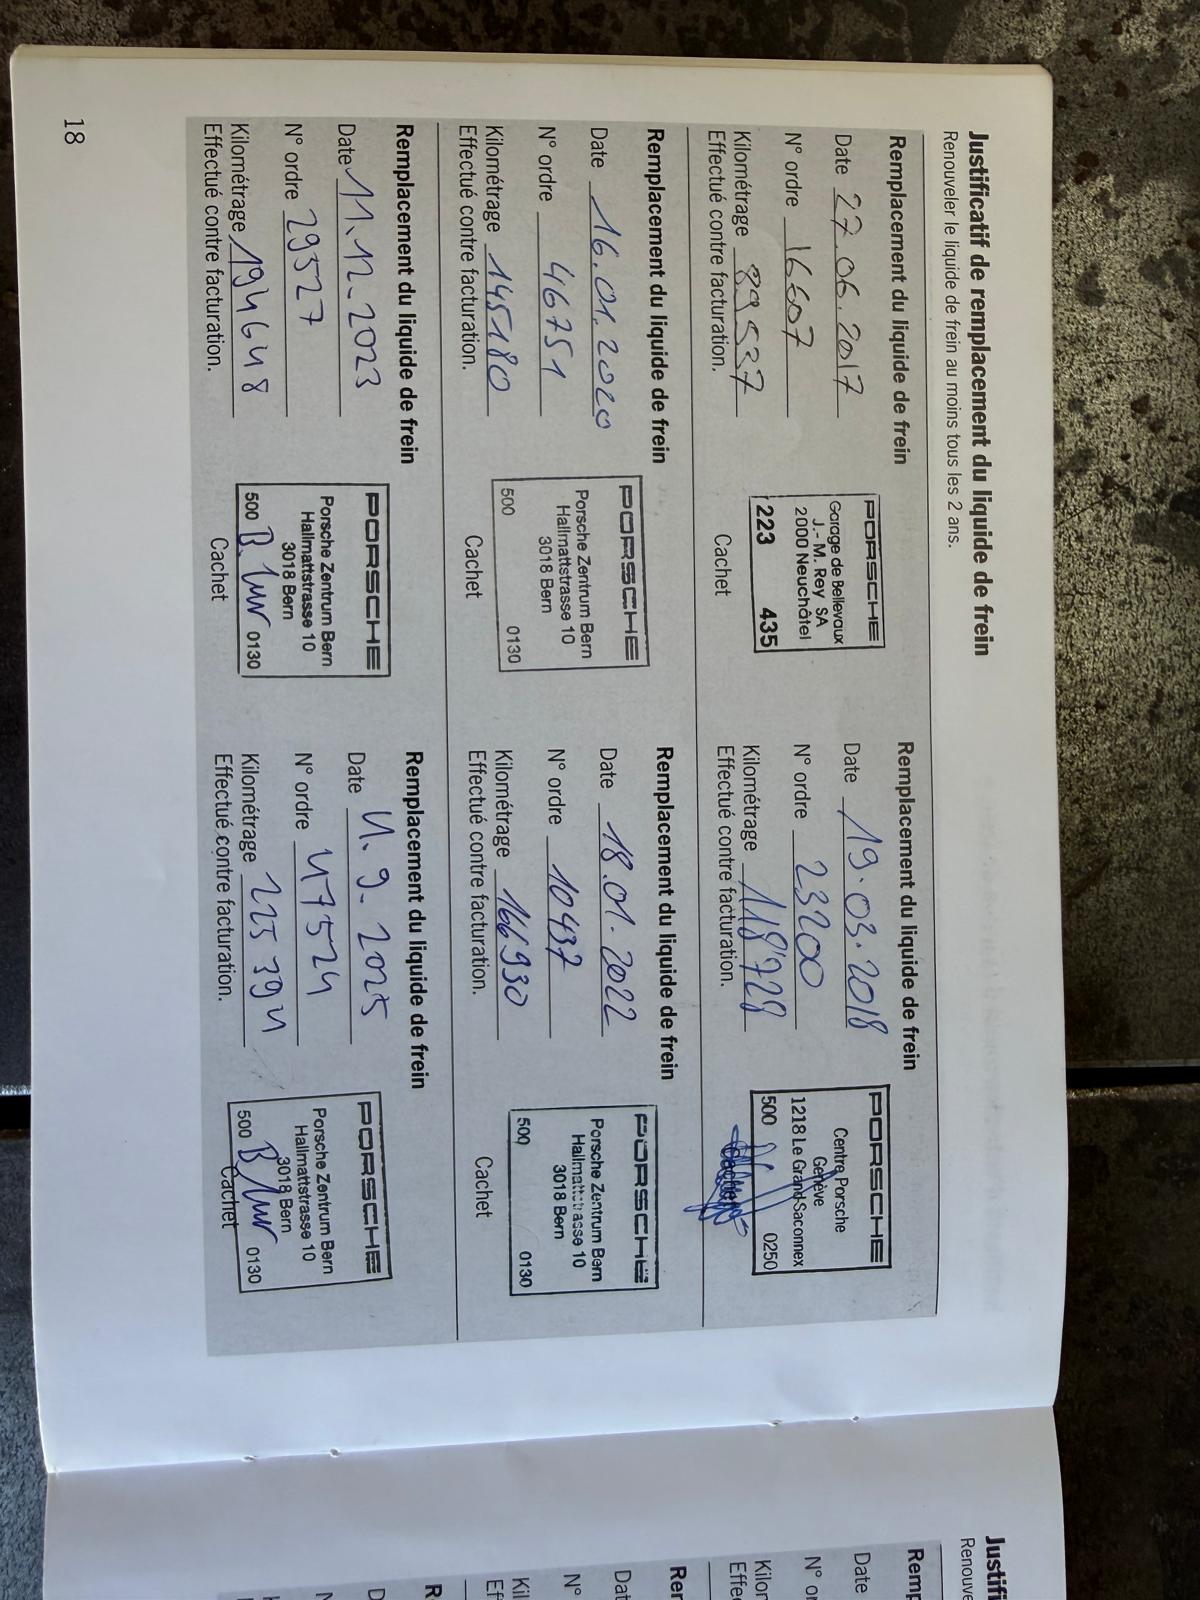 Justificatif de remplacement du liquide de frein
Renouveler le liquide de frein au moins tous les 2 ans.
Remplacement du liquide de frein
Date 27.06.2017
N° ordre 16607
Kilométrage 89537
Effectué contre facturation.
PORSCHE
Garage de Bellevaux
J.- M. Rey SA
2000 Neuchâtel
223 435
Cachet
Remplacement du liquide de frein
Date 19.03.2018
N° ordre 23200
Kilométrage 118'728
Effectué contre facturation.
PORSCHE
Centre Porsche
Genève
1218 Le Grand-Saconnex
500 0250
Cachet
Remplacement du liquide de frein
Date 16.01.2020
N° ordre 46751
Kilométrage 145180
Effectué contre facturation.
PORSCHE
Porsche Zentrum Bern
Hallmattstrasse 10
3018 Bern
500 0130
Cachet
Remplacement du liquide de frein
Date 18.01.2022
N° ordre 10437
Kilométrage 166930
Effectué contre facturation.
PORSCHE
Porsche Zentrum Bern
Hallmattstrasse 10
3018 Bern
500 0130
Cachet
Remplacement du liquide de frein
Date 11.12.2023
N° ordre 29527
Kilométrage 194648
Effectué contre facturation.
PORSCHE
Porsche Zentrum Bern
Hallmattstrasse 10
3018 Bern
500 0130
Cachet
Remplacement du liquide de frein
Date 4.9.2025
N° ordre 47524
Kilométrage 225394
Effectué contre facturation.
PORSCHE
Porsche Zentrum Bern
Hallmattstrasse 10
3018 Bern
500 0130
Cachet
18
Justifi
Renouve
Remp
Date
N° or
Kilon
Effec
Rer
Dat
N°
Kil
Ef
R
D